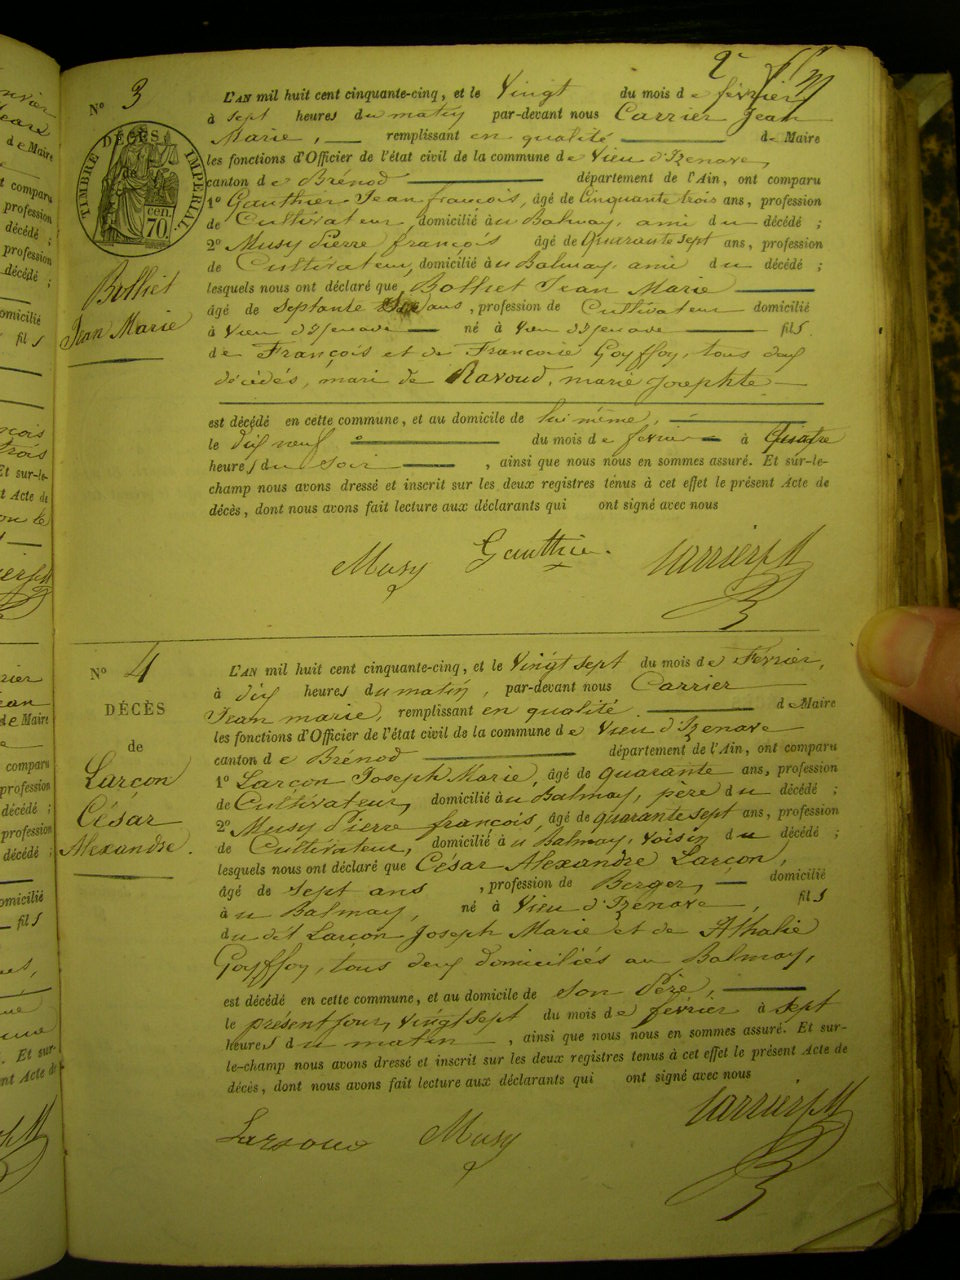 2e
N° 3
TIMBRE IMPÉRIAL.
DÉCÈS
de
70. cen.
Bolliet
Jean Marie
L'AN mil huit cent cinquante-cinq, et le Vingt du mois de février
à sept heures du matin par-devant nous Carrier Jean
Marie, remplissant en qualité de Maire
les fonctions d'Officier de l'état civil de la commune de Vieu d'Izenave,
canton de Brénod département de l'Ain, ont comparu
1° Gauthier Jean françois, âgé de Cinquante trois ans, profession
de Cultivateur, domicilié àu Balmay, ami du décédé ;
2° Musy Pierre françois âgé de Quarante sept ans, profession
de Cultivateur, domicilié àu Balmay, ami du décédé ;
lesquels nous ont déclaré que Bolliet Jean Marie
âgé de septante ans, profession de Cultivateur domicilié
à Vieu d'Izenave né à Vieu d'Izenave fils
de François et de Francoise Goyffoy, tous deux
décédés, mari de Ravoud, marie Josephte
est décédé en cette commune, et au domicile de lui même,
le dix neuf du mois de février à Quatre
heures du soir , ainsi que nous nous en sommes assuré. Et sur-le-
champ nous avons dressé et inscrit sur les deux registres tenus à cet effet le présent Acte de
décès, dont nous avons fait lecture aux déclarants qui ont signé avec nous
Musy Gauthier. Carrier JM
N° 4
DÉCÈS
de
Larçon
César
Alexandre.
L'AN mil huit cent cinquante-cinq, et le Vingt sept du mois de Février,
à dix heures du matin, par-devant nous Carrier
Jean marie, remplissant en qualité de Maire
les fonctions d'Officier de l'état civil de la commune de Vieu d'Izenave
canton de Brénod département de l'Ain, ont comparu
1° Larçon Joseph Marie, âgé de quarante ans, profession
de Cultivateur, domicilié àu Balmay, père du décédé ;
2° Musy Pierre françois, âgé de quarante sept ans, profession
de Cultivateur, domicilié àu Balmay, voisin du décédé ;
lesquels nous ont déclaré que César Alexandre Larçon,
âgé de sept ans , profession de Berger, domicilié
àu Balmay, né à Vieu d'Izenave, fils
du dit Larçon Joseph Marie et de Athalie
Goyffoy, tous deux domiciliés au Balmay,
est décédé en cette commune, et au domicile de son Père,
le présent jour, vingt sept du mois de février à sept
heures du matin , ainsi que nous nous en sommes assuré. Et sur-
le-champ nous avons dressé et inscrit sur les deux registres tenus à cet effet le présent Acte de
décès, dont nous avons fait lecture aux déclarants qui ont signé avec nous
Musy Carrier JM